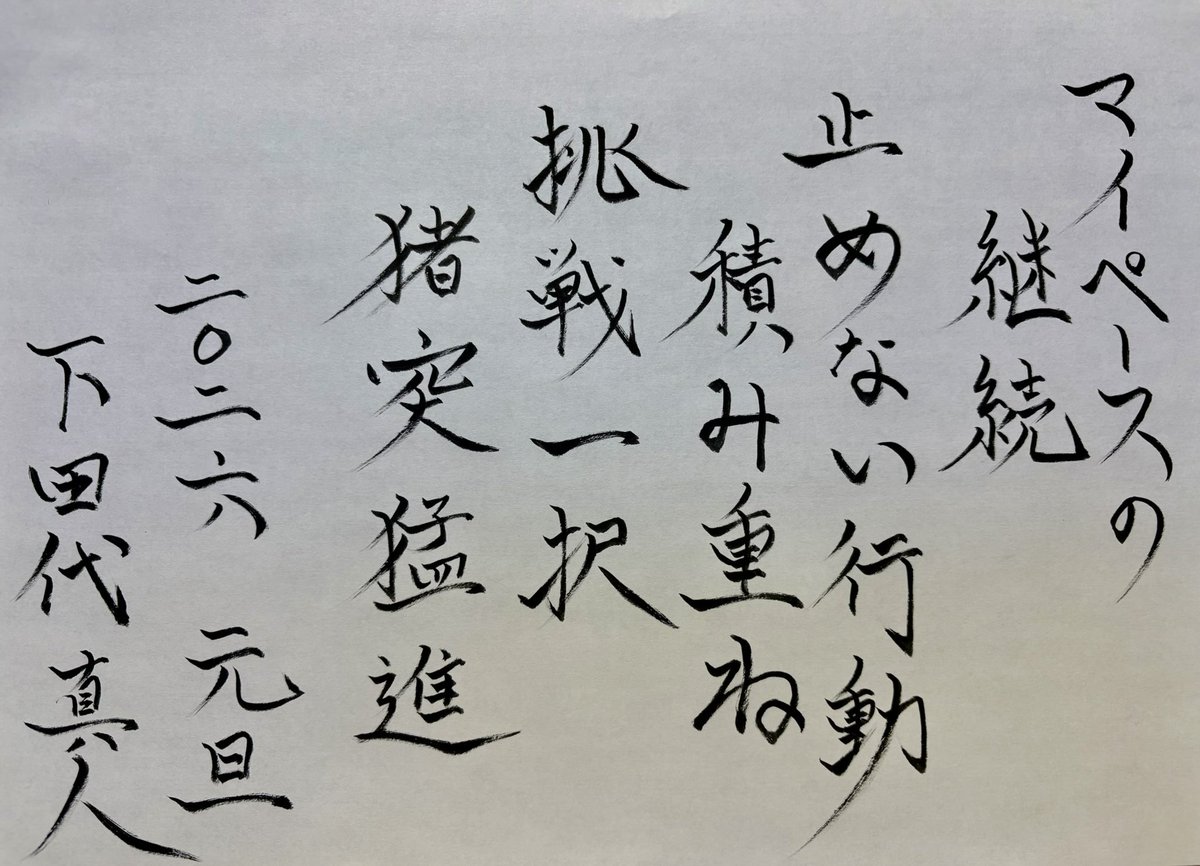 マイペースの
継続
止めない行動
積み重ね
挑戦一択
猪突猛進
二〇二六 元旦
下田代真人